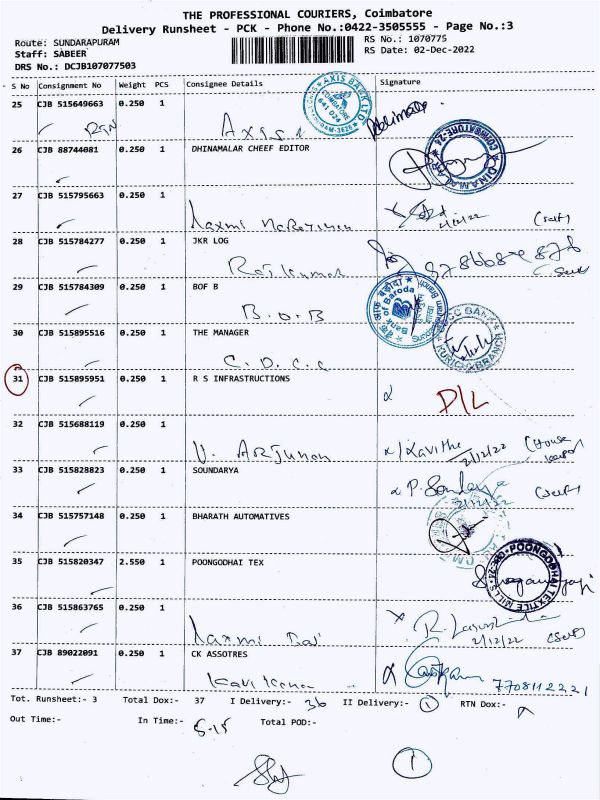 THE PROFESSIONAL COURIERS, Coimbatore
Delivery Runsheet - PCK - Phone No.:0422-3505555 - Page No.:3
Route: SUNDARAPURAM RS No.: 1070775
Staff: SABEER RS Date: 02-Dec-2022
DRS No.: DCJB107077503
S No Consignment No Weight PCS Consignee Details Signature
25 CJB 515649663 0.250 1
AXIS BANK LTD
COIMBATORE
641 024
26 CJB 88744081 0.250 1 DHINAMALAR CHEEF EDITOR
COIMBATORE-24
DINAMALAR
27 CJB 515795663 0.250 1
Laxmi 2/12/22 (self)
28 CJB 515784277 0.250 1 JKR LOG
Raj Kumar
29 CJB 515784309 0.250 1 BOF B
B.O.B
Bank of Baroda
30 CJB 515895516 0.250 1 THE MANAGER
C.D.C.C
BANK
KURICHI BRANCH
31 CJB 515895951 0.250 1 R S INFRASTRUCTIONS
D/L
32 CJB 515688119 0.250 1
V. Arjunan Kavitha 2/12/22 (House
33 CJB 515828823 0.250 1 SOUNDARYA
P. 2/12/22 (self)
34 CJB 515757148 0.250 1 BHARATH AUTOMATIVES
35 CJB 515820347 2.550 1 POONGODHAI TEX
POONGODHAI TEXTILE MILLS
36 CJB 515863765 0.250 1
Laxmi R. 2/12/22 (self)
37 CJB 89022091 0.250 1 CK ASSOTRES
7708112221
Tot. Runsheet:- 3 Total Dox:- 37 I Delivery:- 36 II Delivery:- 1 RTN Dox:-
Out Time:- In Time:- 5.15 Total POD:-
1